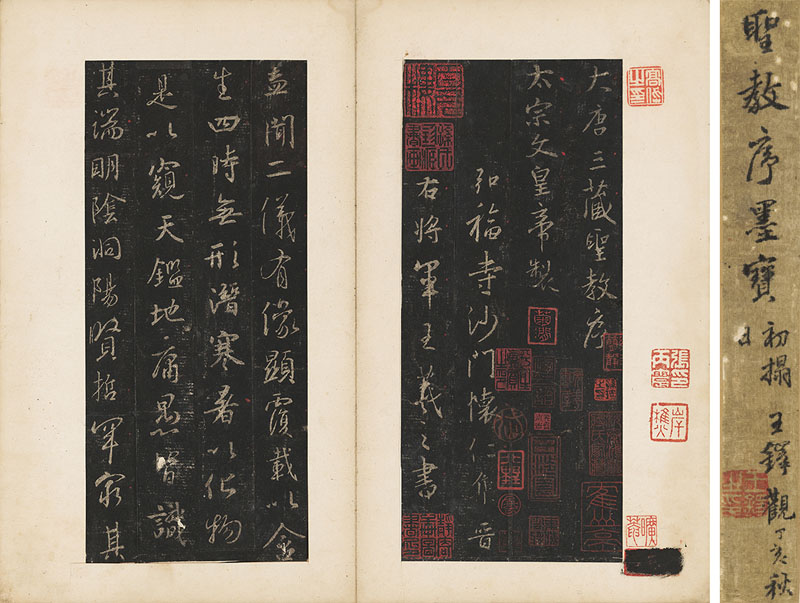 聖教序墨寶
初搨
王鐸觀丁亥秋
大唐三藏聖教序
太宗文皇帝製
弘福寺沙門懷仁集晉
右將軍王羲之書
蓋聞二儀有像顯覆載以含
生四時無形潛寒暑以化物
是以窺天鑑地庸愚皆識
其端明陰洞陽賢哲罕窮其